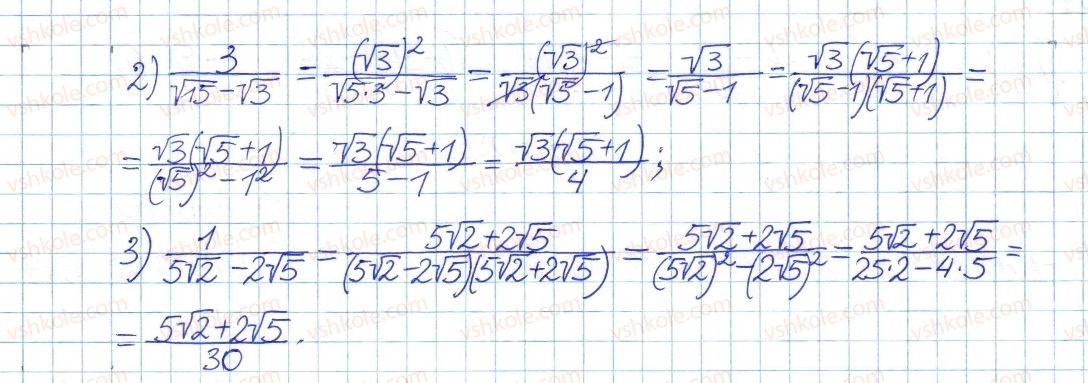 2) 3/(√15 − √3) = (√3)²/(√5·3 − √3) = (√3)²/(√3(√5 − 1)) = √3/(√5 − 1) = √3(√5 + 1)/((√5 − 1)(√5 + 1)) =
= √3(√5 + 1)/((√5)² − 1²) = √3(√5 + 1)/(5 − 1) = √3(√5 + 1)/4;
3) 1/(5√2 − 2√5) = (5√2 + 2√5)/((5√2 − 2√5)(5√2 + 2√5)) = (5√2 + 2√5)/((5√2)² − (2√5)²) = (5√2 + 2√5)/(25·2 − 4·5) =
= (5√2 + 2√5)/30.
vshkole.com